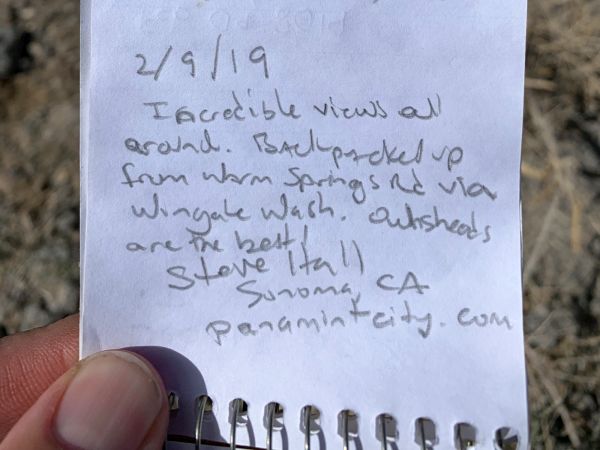 2/9/19
Incredible views all
around. Backpacked up
from Warm Springs Rd via
Wingate Wash. Owlsheads
are the best!
Steve Hall
Sonoma, CA
panamintcity.com